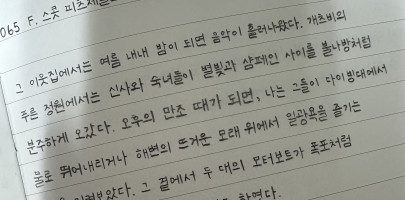 065 F. 스콧 피츠제럴
그 이웃집에서는 여름 내내 밤이 되면 음악이 흘러나왔다. 개츠비의
푸른 정원에서는 신사와 숙녀들이 별빛과 샴페인 사이를 불나방처럼
분주하게 오갔다. 오후의 만조 때가 되면, 나는 그들이 다이빙대에서
물로 뛰어내리거나 해변의 뜨거운 모래 위에서 일광욕을 즐기는
그 곁에서 두 대의 모터보트가 폭포처럼
하였다.